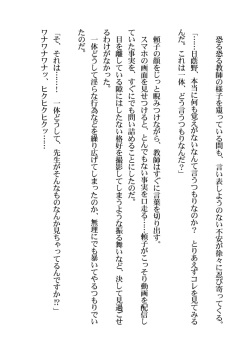 恐る恐る教師の様子を窺っている間も、言い表しようのない不安が徐々に忍び寄ってくる。
「……日蔭野、本当に何も覚えがないなんて言うつもりなのか？　とりあえずコレを見てみる
んだ。これは一体、どう言うつもりなんだ？」
頼子の顔をじっと睨みつけながら、教師はすぐに言葉を切り出す。
スマホの画面を見せつけると、とんでもない事実を口走る……頼子がこっそり動画を配信し
ていた事実を、すぐにでも問い詰めることにしたのだ。
目を離している隙にはしたない格好を撮影してしまうような振る舞いなど、決して見過ごせ
るわけがなかった。
一体どうして淫らな行為などを繰り広げてしまったのか、無理にでも暴いてやるつもりでい
たのだ。
「そ、それは……！　一体どうして、先生がそんなものなんか見ちゃってるんですか!?」
ワナワナワナッ、ヒクヒクヒクッ……